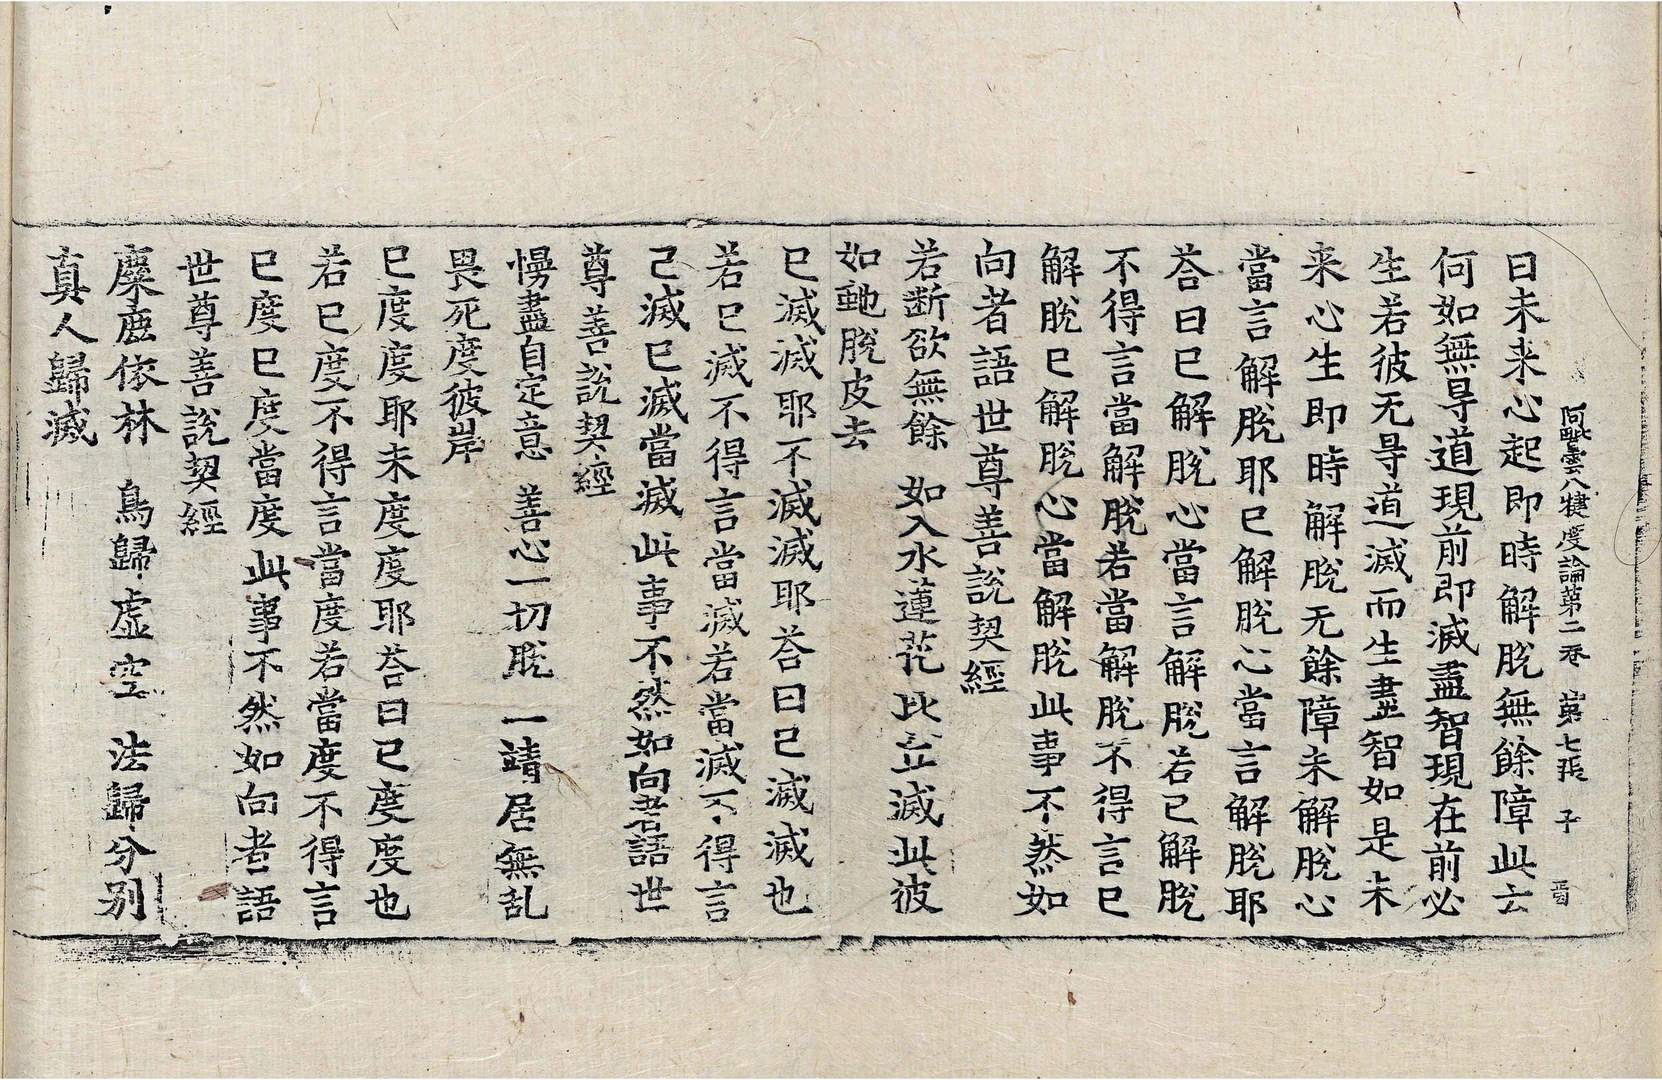 阿毗曇八犍度論第二卷 第七張 子
曰未来心起即時解脫無餘障此云
何如無㝵道現前即滅盡智現在前必
生若彼无㝵道滅而生盡智如是未
来心生即時解脫无餘障未解脫心
當言解脫耶已解脫心當言解脫耶
荅曰已解脫心當言解脫若已解脫
不得言當解脫若當解脫不得言已
解脫已解脫心當解脫此事不然如
向者語世尊善說契經
若斷欲無餘 如入水蓮花 比丘滅此彼
如虵脫皮去
已滅滅耶不滅滅耶荅曰已滅滅也
若已滅不得言當滅若當滅不得言
已滅已滅當滅此事不然如向者語世
尊善說契經
慢盡自定意 善心一切脫 一靖居無乱
畏死度彼岸
已度度耶未度度耶荅曰已度度也
若已度不得言當度若當度不得言
已度已度當度此事不然如向者語
世尊善說契經
麋鹿依林 鳥歸虛空 法歸分別
真人歸滅